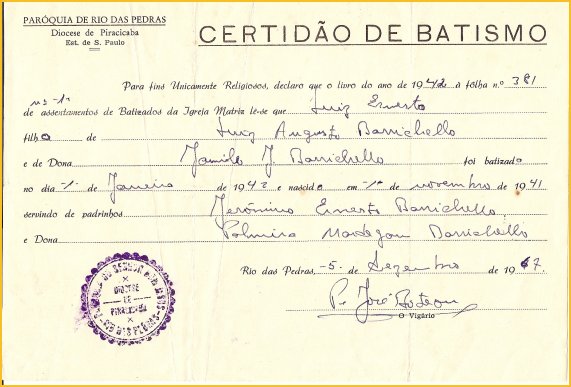 PARÓQUIA DE RIO DAS PEDRAS
Diocese de Piracicaba
Est. de S. Paulo
CERTIDÃO DE BATISMO
Para fins Unicamente Religiosos, declaro que o livro do ano de 1942 à fôlha n.o 381
de assentamentos de Batizados da Igreja Matriz lê-se que Luiz Ernesto
filho de Luiz Augusto Barrichello
e de Dona Jamile J. Barrichello foi batizado
no dia 1º de Janeiro de 1942 e nascido em 1º de novembro de 1941
servindo de padrinhos Jerônimo Ernesto Barrichello
e Dona Palmira Barrichello
Rio das Pedras, 5 de Dezembro de 1967.
P. José
O Vigário
DIOCESE
DE
PIRACICABA